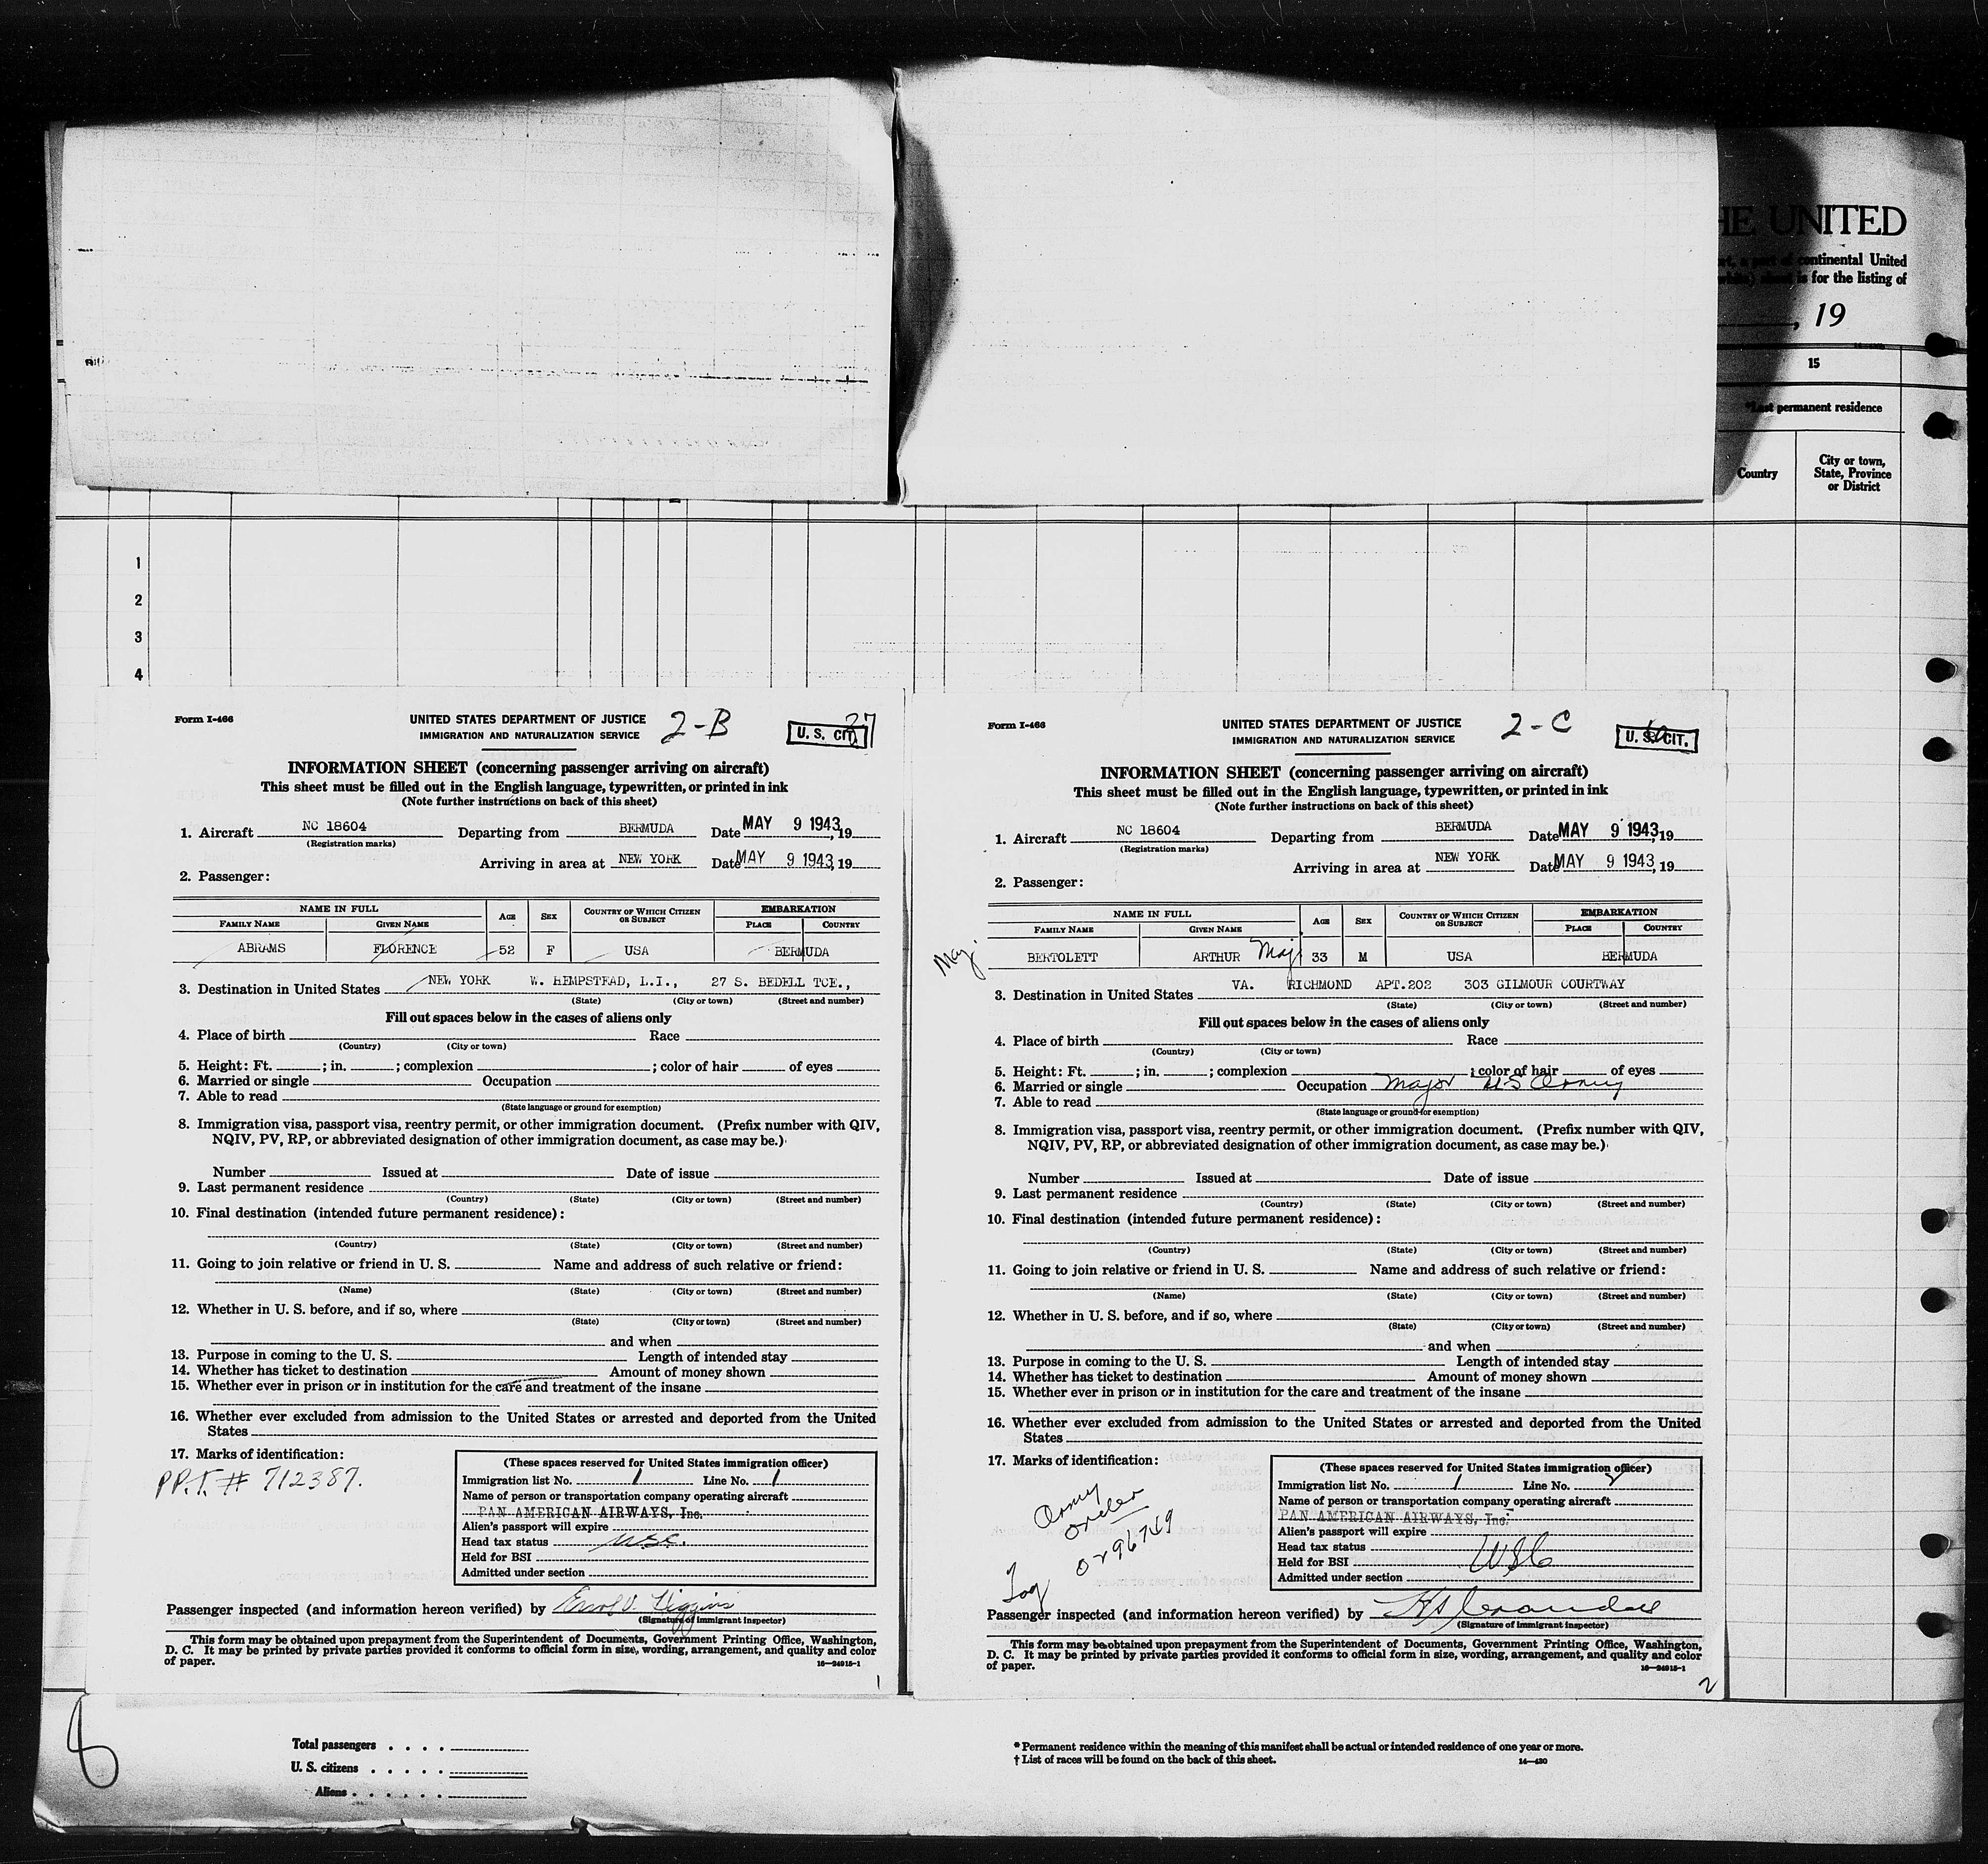 HE UNITED
continental United
is for the listing of
, 19
15
*Last permanent residence
Country
City or town,
State, Province
or District
1
2
3
4
Form I-466
UNITED STATES DEPARTMENT OF JUSTICE
IMMIGRATION AND NATURALIZATION SERVICE
2-B
27
U. S. CIT.
INFORMATION SHEET (concerning passenger arriving on aircraft)
This sheet must be filled out in the English language, typewritten, or printed in ink
(Note further instructions on back of this sheet)
1. Aircraft NC 18604 Departing from BERMUDA Date MAY 9 1943, 19
(Registration marks)
Arriving in area at NEW YORK Date MAY 9 1943, 19
2. Passenger:
NAME IN FULL AGE SEX COUNTRY OF WHICH CITIZEN OR SUBJECT EMBARKATION
FAMILY NAME GIVEN NAME PLACE COUNTRY
ABRAMS FLORENCE 52 F USA BERMUDA
3. Destination in United States NEW YORK W. HEMPSTEAD, L.I., 27 S. BEDELL TCE.,
(State) (City or town) (Street and number)
Fill out spaces below in the cases of aliens only
4. Place of birth Race
(Country) (City or town)
5. Height: Ft. ; in. ; complexion ; color of hair of eyes
6. Married or single Occupation
7. Able to read
(State language or ground for exemption)
8. Immigration visa, passport visa, reentry permit, or other immigration document. (Prefix number with QIV,
NQIV, PV, RP, or abbreviated designation of other immigration document, as case may be.)
Number Issued at Date of issue
9. Last permanent residence
(Country) (State) (City or town) (Street and number)
10. Final destination (intended future permanent residence):
(Country) (State) (City or town) (Street and number)
11. Going to join relative or friend in U. S. Name and address of such relative or friend:
(Name) (State) (City or town) (Street and number)
12. Whether in U. S. before, and if so, where
(State) (City or town) (Street and number)
and when
13. Purpose in coming to the U. S. Length of intended stay
14. Whether has ticket to destination Amount of money shown
15. Whether ever in prison or in institution for the care and treatment of the insane
16. Whether ever excluded from admission to the United States or arrested and deported from the United
States
17. Marks of identification:
PP.T. # 712387.
(These spaces reserved for United States immigration officer)
Immigration list No. 1 Line No. 1
Name of person or transportation company operating aircraft
PAN AMERICAN AIRWAYS, Inc.
Alien's passport will expire
Head tax status USC.
Held for BSI
Admitted under section
Passenger inspected (and information hereon verified) by Errol V. Liggins
(Signature of immigrant inspector)
This form may be obtained upon prepayment from the Superintendent of Documents, Government Printing Office, Washington,
D. C. It may be printed by private parties provided it conforms to official form in size, wording, arrangement, and quality and color
of paper.
16—24915-1
1
Form I-466
UNITED STATES DEPARTMENT OF JUSTICE
IMMIGRATION AND NATURALIZATION SERVICE
2-C
U. S. CIT.
INFORMATION SHEET (concerning passenger arriving on aircraft)
This sheet must be filled out in the English language, typewritten, or printed in ink
(Note further instructions on back of this sheet)
1. Aircraft NC 18604 Departing from BERMUDA Date MAY 9 1943, 19
(Registration marks)
Arriving in area at NEW YORK Date MAY 9 1943, 19
2. Passenger:
NAME IN FULL AGE SEX COUNTRY OF WHICH CITIZEN OR SUBJECT EMBARKATION
FAMILY NAME GIVEN NAME PLACE COUNTRY
Maj. BERTOLETT ARTHUR Maj 33 M USA BERMUDA
3. Destination in United States VA. RICHMOND APT.202 303 GILMOUR COURTWAY
(State) (City or town) (Street and number)
Fill out spaces below in the cases of aliens only
4. Place of birth Race
(Country) (City or town)
5. Height: Ft. ; in. ; complexion ; color of hair of eyes
6. Married or single Occupation Major US Army
7. Able to read
(State language or ground for exemption)
8. Immigration visa, passport visa, reentry permit, or other immigration document. (Prefix number with QIV,
NQIV, PV, RP, or abbreviated designation of other immigration document, as case may be.)
Number Issued at Date of issue
9. Last permanent residence
(Country) (State) (City or town) (Street and number)
10. Final destination (intended future permanent residence):
(Country) (State) (City or town) (Street and number)
11. Going to join relative or friend in U. S. Name and address of such relative or friend:
(Name) (State) (City or town) (Street and number)
12. Whether in U. S. before, and if so, where
(State) (City or town) (Street and number)
and when
13. Purpose in coming to the U. S. Length of intended stay
14. Whether has ticket to destination Amount of money shown
15. Whether ever in prison or in institution for the care and treatment of the insane
16. Whether ever excluded from admission to the United States or arrested and deported from the United
States
17. Marks of identification:
Army
order
(These spaces reserved for United States immigration officer)
Immigration list No. 1 Line No. 2
Name of person or transportation company operating aircraft
PAN AMERICAN AIRWAYS, Inc.
Alien's passport will expire
Head tax status
Held for BSI USC
Admitted under section
Passenger inspected (and information hereon verified) by
(Signature of immigrant inspector)
This form may be obtained upon prepayment from the Superintendent of Documents, Government Printing Office, Washington,
D. C. It may be printed by private parties provided it conforms to official form in size, wording, arrangement, and quality and color
of paper.
16—24915-1
2
8
Total passengers . . . .
U. S. citizens . . . . .
Aliens . . . . . .
* Permanent residence within the meaning of this manifest shall be actual or intended residence of one year or more.
† List of races will be found on the back of this sheet.
14—420